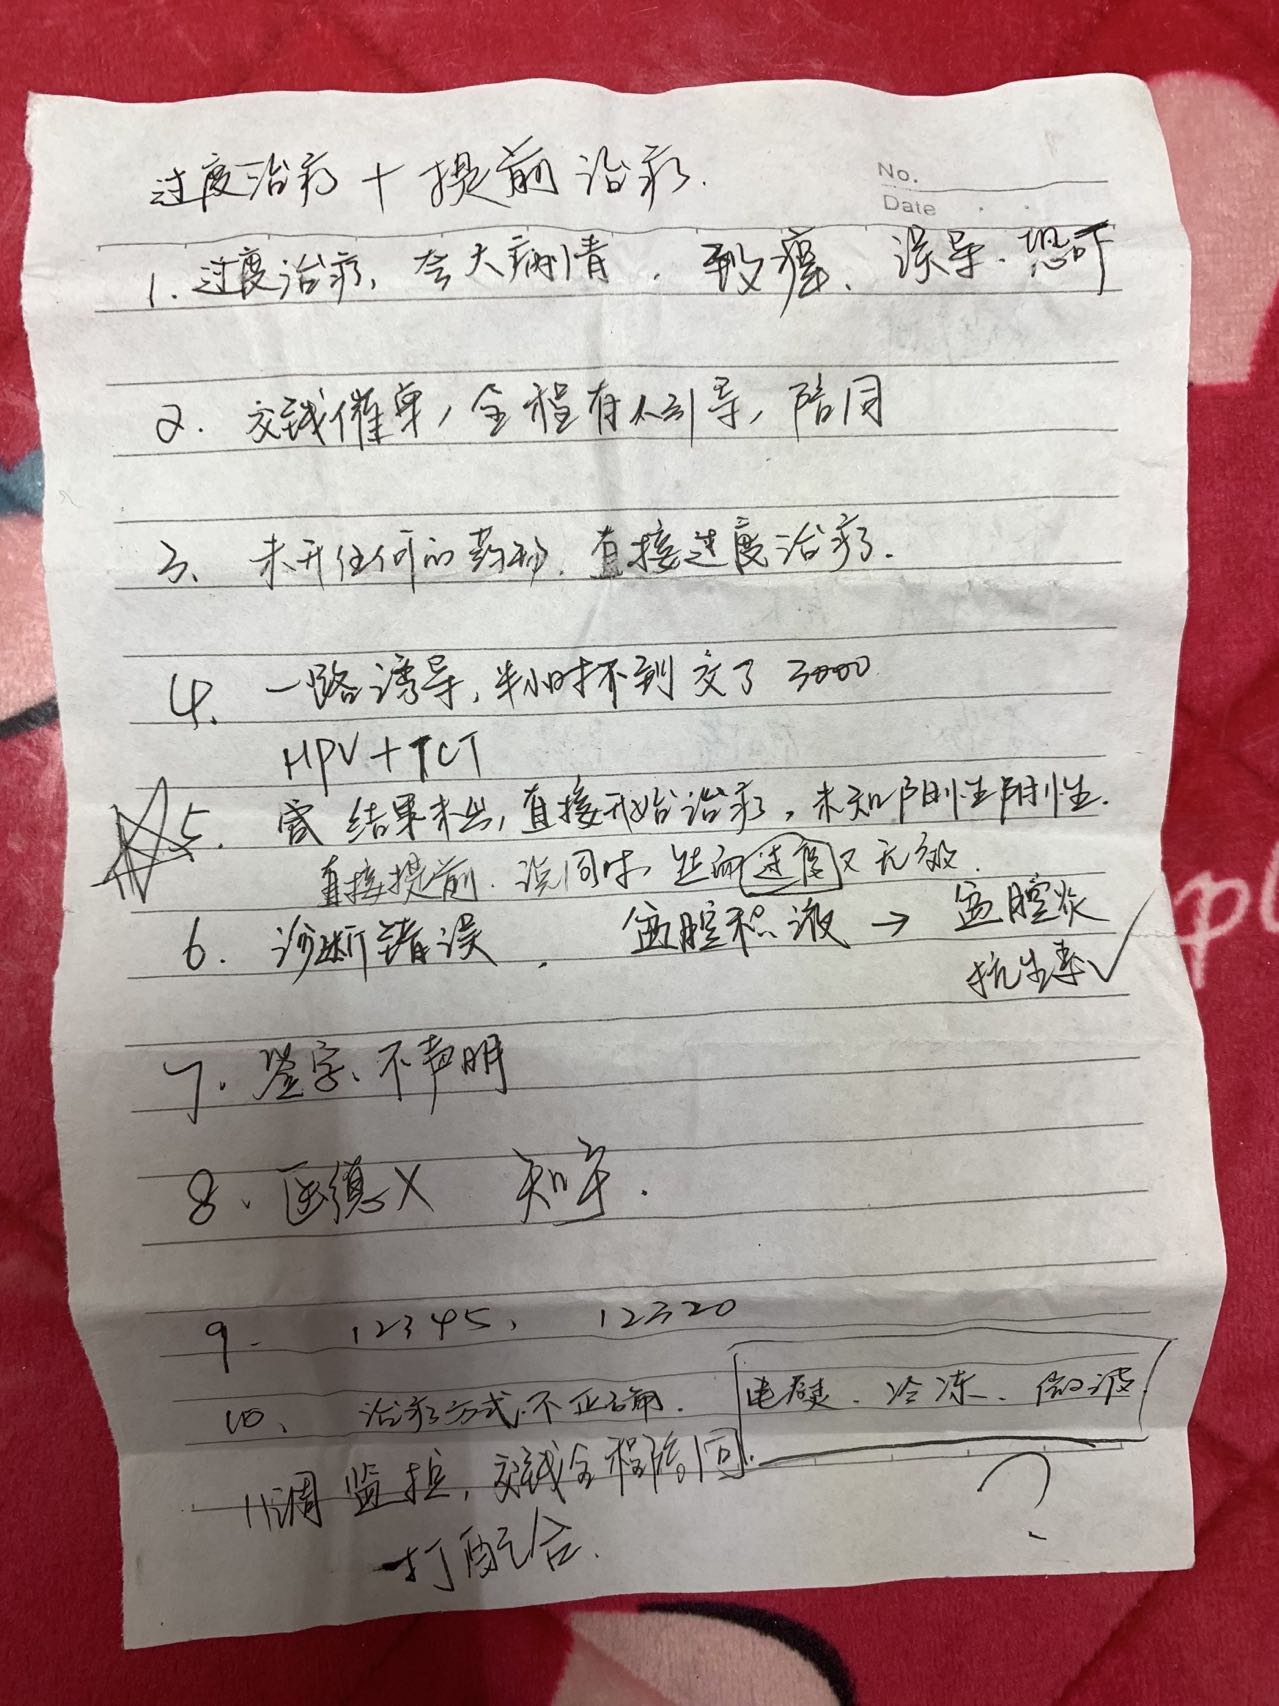 过度治疗+提前治疗.
No.
Date
1.过度治疗,夸大病情.致癌、误导.恐吓
2.交钱催单,全程有人引导,陪同
3、未开任何的药物.直接过度治疗.
4.一路诱导,半小时不到交了3000
HPV+TCT
5.结果未出,直接开始治疗,未知阴性阳性.
直接提前.过度又无效.
6.诊断错误.盆腔积液→盆腔炎
抗生素✓
7.签字、不声明
8、医德X
9-12345、12320
10、治疗方式不正确.电灼、冷冻、微波
11调监控,交钱全程陪同.
?
打配合.
pl